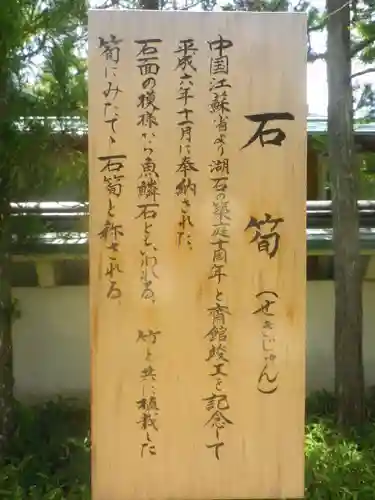 石筍
(せきじゅん)
中国江蘇省より湖石の築庭十周年と斎館竣工を記念して
平成六年十一月に奉納された。
石面の模様から魚鱗石ともいわれる。竹と共に植栽した
筍にみたてゝ石筍と称される。